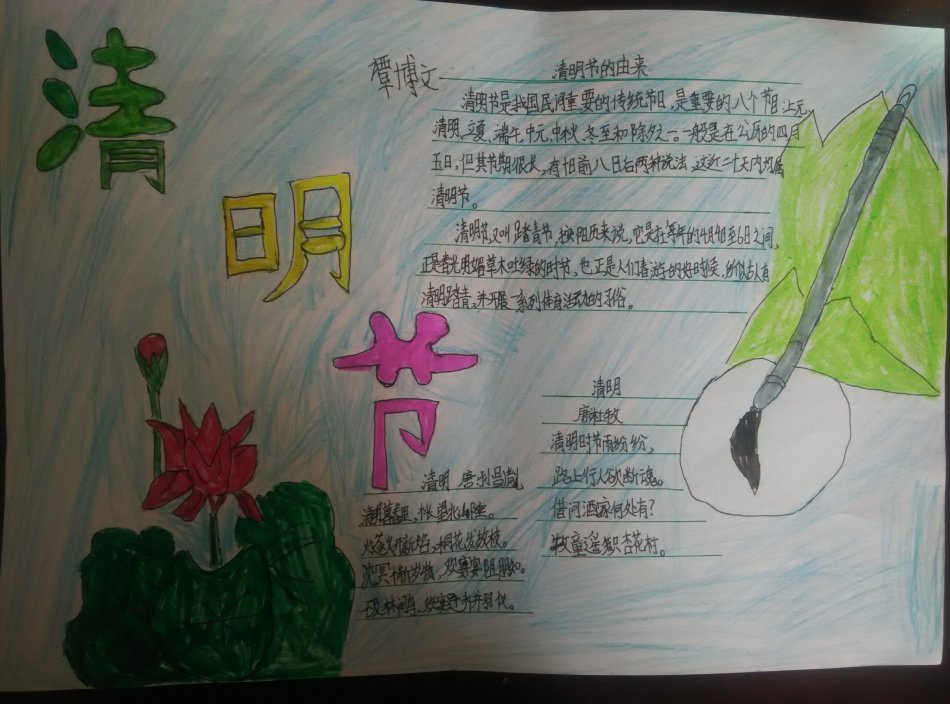 清
明
节
覃博文
清明节的由来
清明节是我国民间重要的传统节日，是重要的八个节日上元、
清明、立夏、端午、中元、中秋、冬至和除夕之一。一般是在公历的四月
五日，但其节期很长，有十日前八日后两种说法，这近二十天内均属
清明节。
清明节又叫踏青节，按阳历来说，它是在每年的4月4日至6日之间，
正是春光明媚草木吐绿的时节，也正是人们春游的好时候，所以古人有
清明踏青，并开展一系列体育活动的习俗。
清明
唐杜牧
清明时节雨纷纷，
路上行人欲断魂。
借问酒家何处有？
牧童遥 杏花村。
清明 唐
清明暮春里，怅望北 。
桐花发故枝。
沈冥 岁物，欢 宴阻朋知。
林间